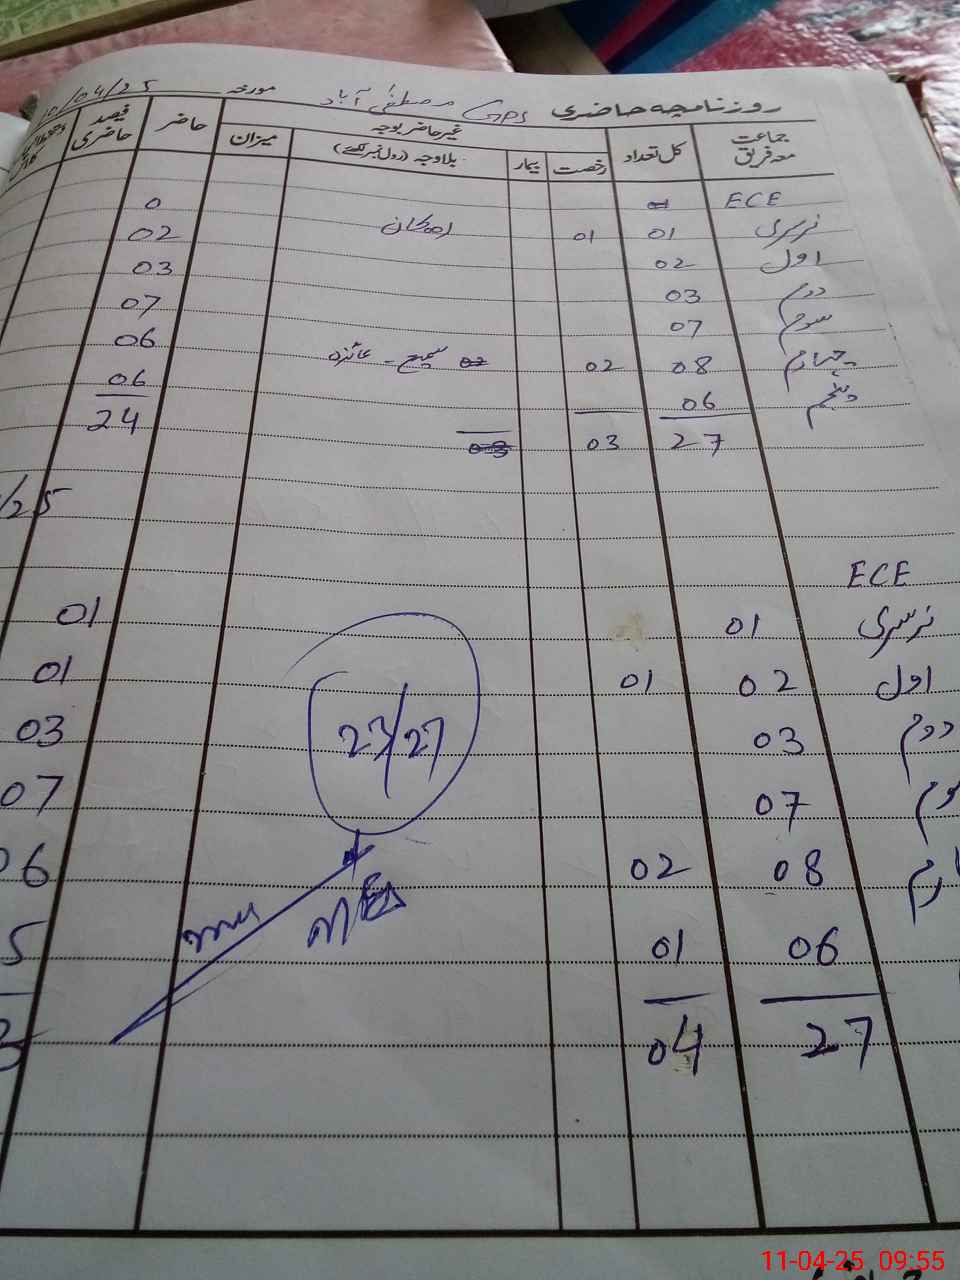 روزنامچہ حاضری GPS مصطفیٰ آباد مورخہ 10/04/25
جماعت معہ فریق کل تعداد غیر حاضر بوجہ میزان حاضر فیصد حاضری
رخصت بیمار بلاوجہ (رول نمبر لکھیے)
ECE 0
نرسری 01 01 02
اول 02 03
دوم 03 07
سوم 07 06
چہارم 08 02 سمیع - عائزہ 06
پنجم 06
27 03 03 24
/25
ECE
نرسری 01 01
اول 02 01 01
دوم 03 03
وم 07 07
ارم 08 02 06
06 01 5
27 04 3
23/27
11-04-25 09:55